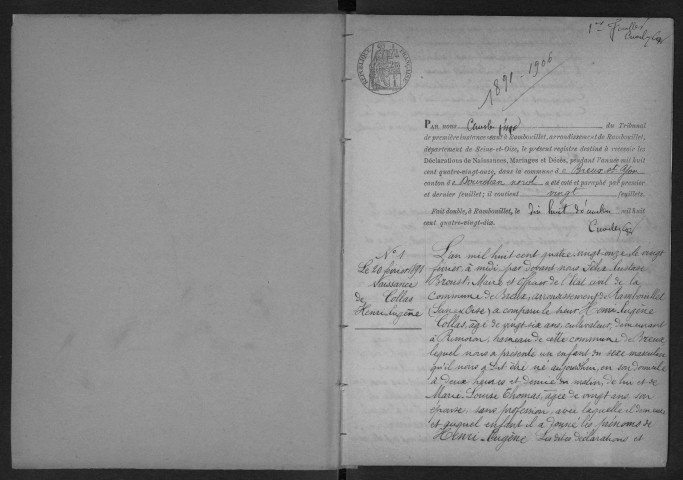 1er feuillet
RÉPUBLIQUE FRANÇAISE
1891 - 1906
PAR NOUS juge du Tribunal
de première instance séant à Rambouillet, arrondissement de Rambouillet,
département de Seine-et-Oise, le présent registre destiné à recevoir les
Déclarations de Naissances, Mariages et Décès, pendant l'année mil huit
cent quatre-vingt-onze, dans la commune d e Breux
canton d e Dourdan nord a été coté et paraphé par premier
et dernier feuillet; il contient vingt feuillets.
Fait double, à Rambouillet, le dix huit décembre mil huit
cent quatre-vingt-dix.
No 1
Le 20 février 1891
Naissance
de Collas
Henri Eugène
L'an mil huit cent quatre vingt onze le vingt
février, à midi, par devant nous Félix Gustave
Broust, Maire et officier de l'état civil de la
commune de Breux, arrondissement de Rambouillet
(Seine et Oise) a comparu le sieur Henri Eugène
Collas, âgé de vingt six ans, cultivateur, demeurant
à Rimoron, hameau de cette commune de Breux
lequel nous a présenté un enfant du sexe masculin
qu'il nous a dit être né aujourd'hui, en son domicile
à deux heures et demie du matin, de lui et de
Marie Louise Thomas, âgée de vingt ans, son
épouse, sans profession, avec laquelle il demeure
et auquel enfant il a donné les prénoms de
Henri Eugène. Les dites déclarations et